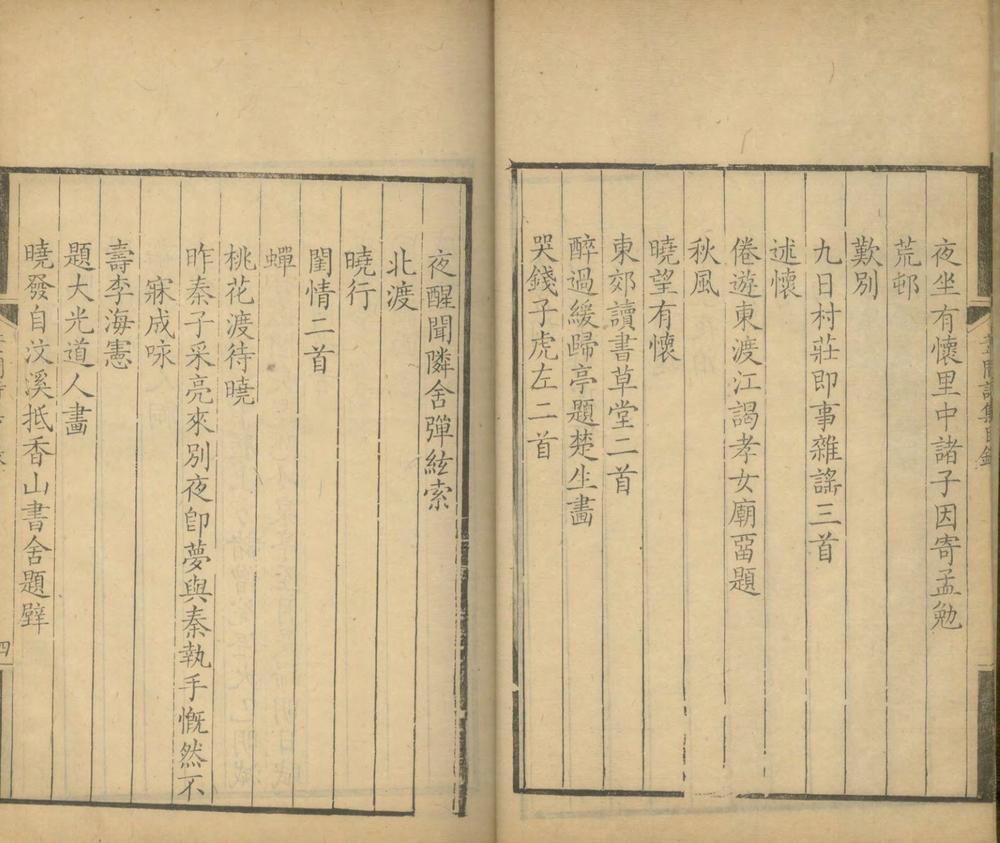 夜坐有懷里中諸子因寄孟勉
荒邨
歎別
九日村莊即事雜謡三首
述懷
倦遊東渡江謁孝女廟畱題
秋風
曉望有懷
東郊讀書草堂二首
醉過緩歸亭題楚生畫
哭錢子虎左二首
夜醒聞隣舍彈絃索
北渡
曉行
閨情二首
蟬
桃花渡待曉
昨秦子采亮來別夜卽夢與秦執手慨然不
寐成咏
壽李海憲
題大光道人畫
曉發自汶溪抵香山書舍題壁
四